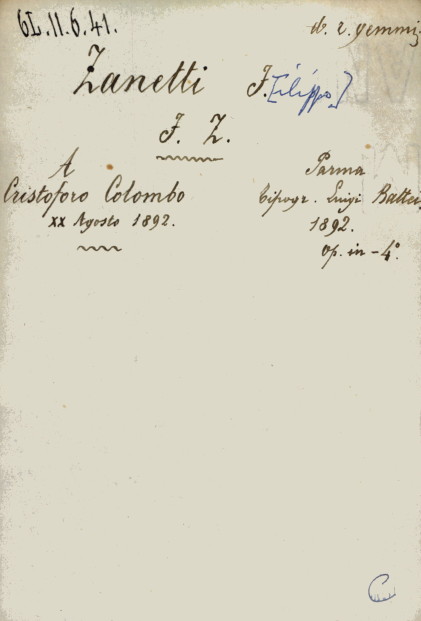 6L.11.6.41.
d. r. gemmi
Zanetti F.[ilippo]
F. Z.
A
Cristoforo Colombo
XX Agosto 1892.
Parma
Tipogr. Luigi Battei,
1892.
op. in-4°.
C